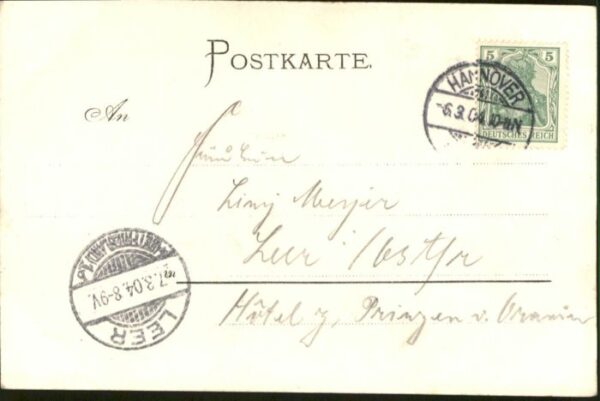 POSTKARTE.
5 5
DEUTSCHES REICH
HANNOVER
6.3.04.
An
Fräulein
Leer /Ostfr
LEER
7.3.04.8-9V.
Hôtel z. Prinzen v. Oranien